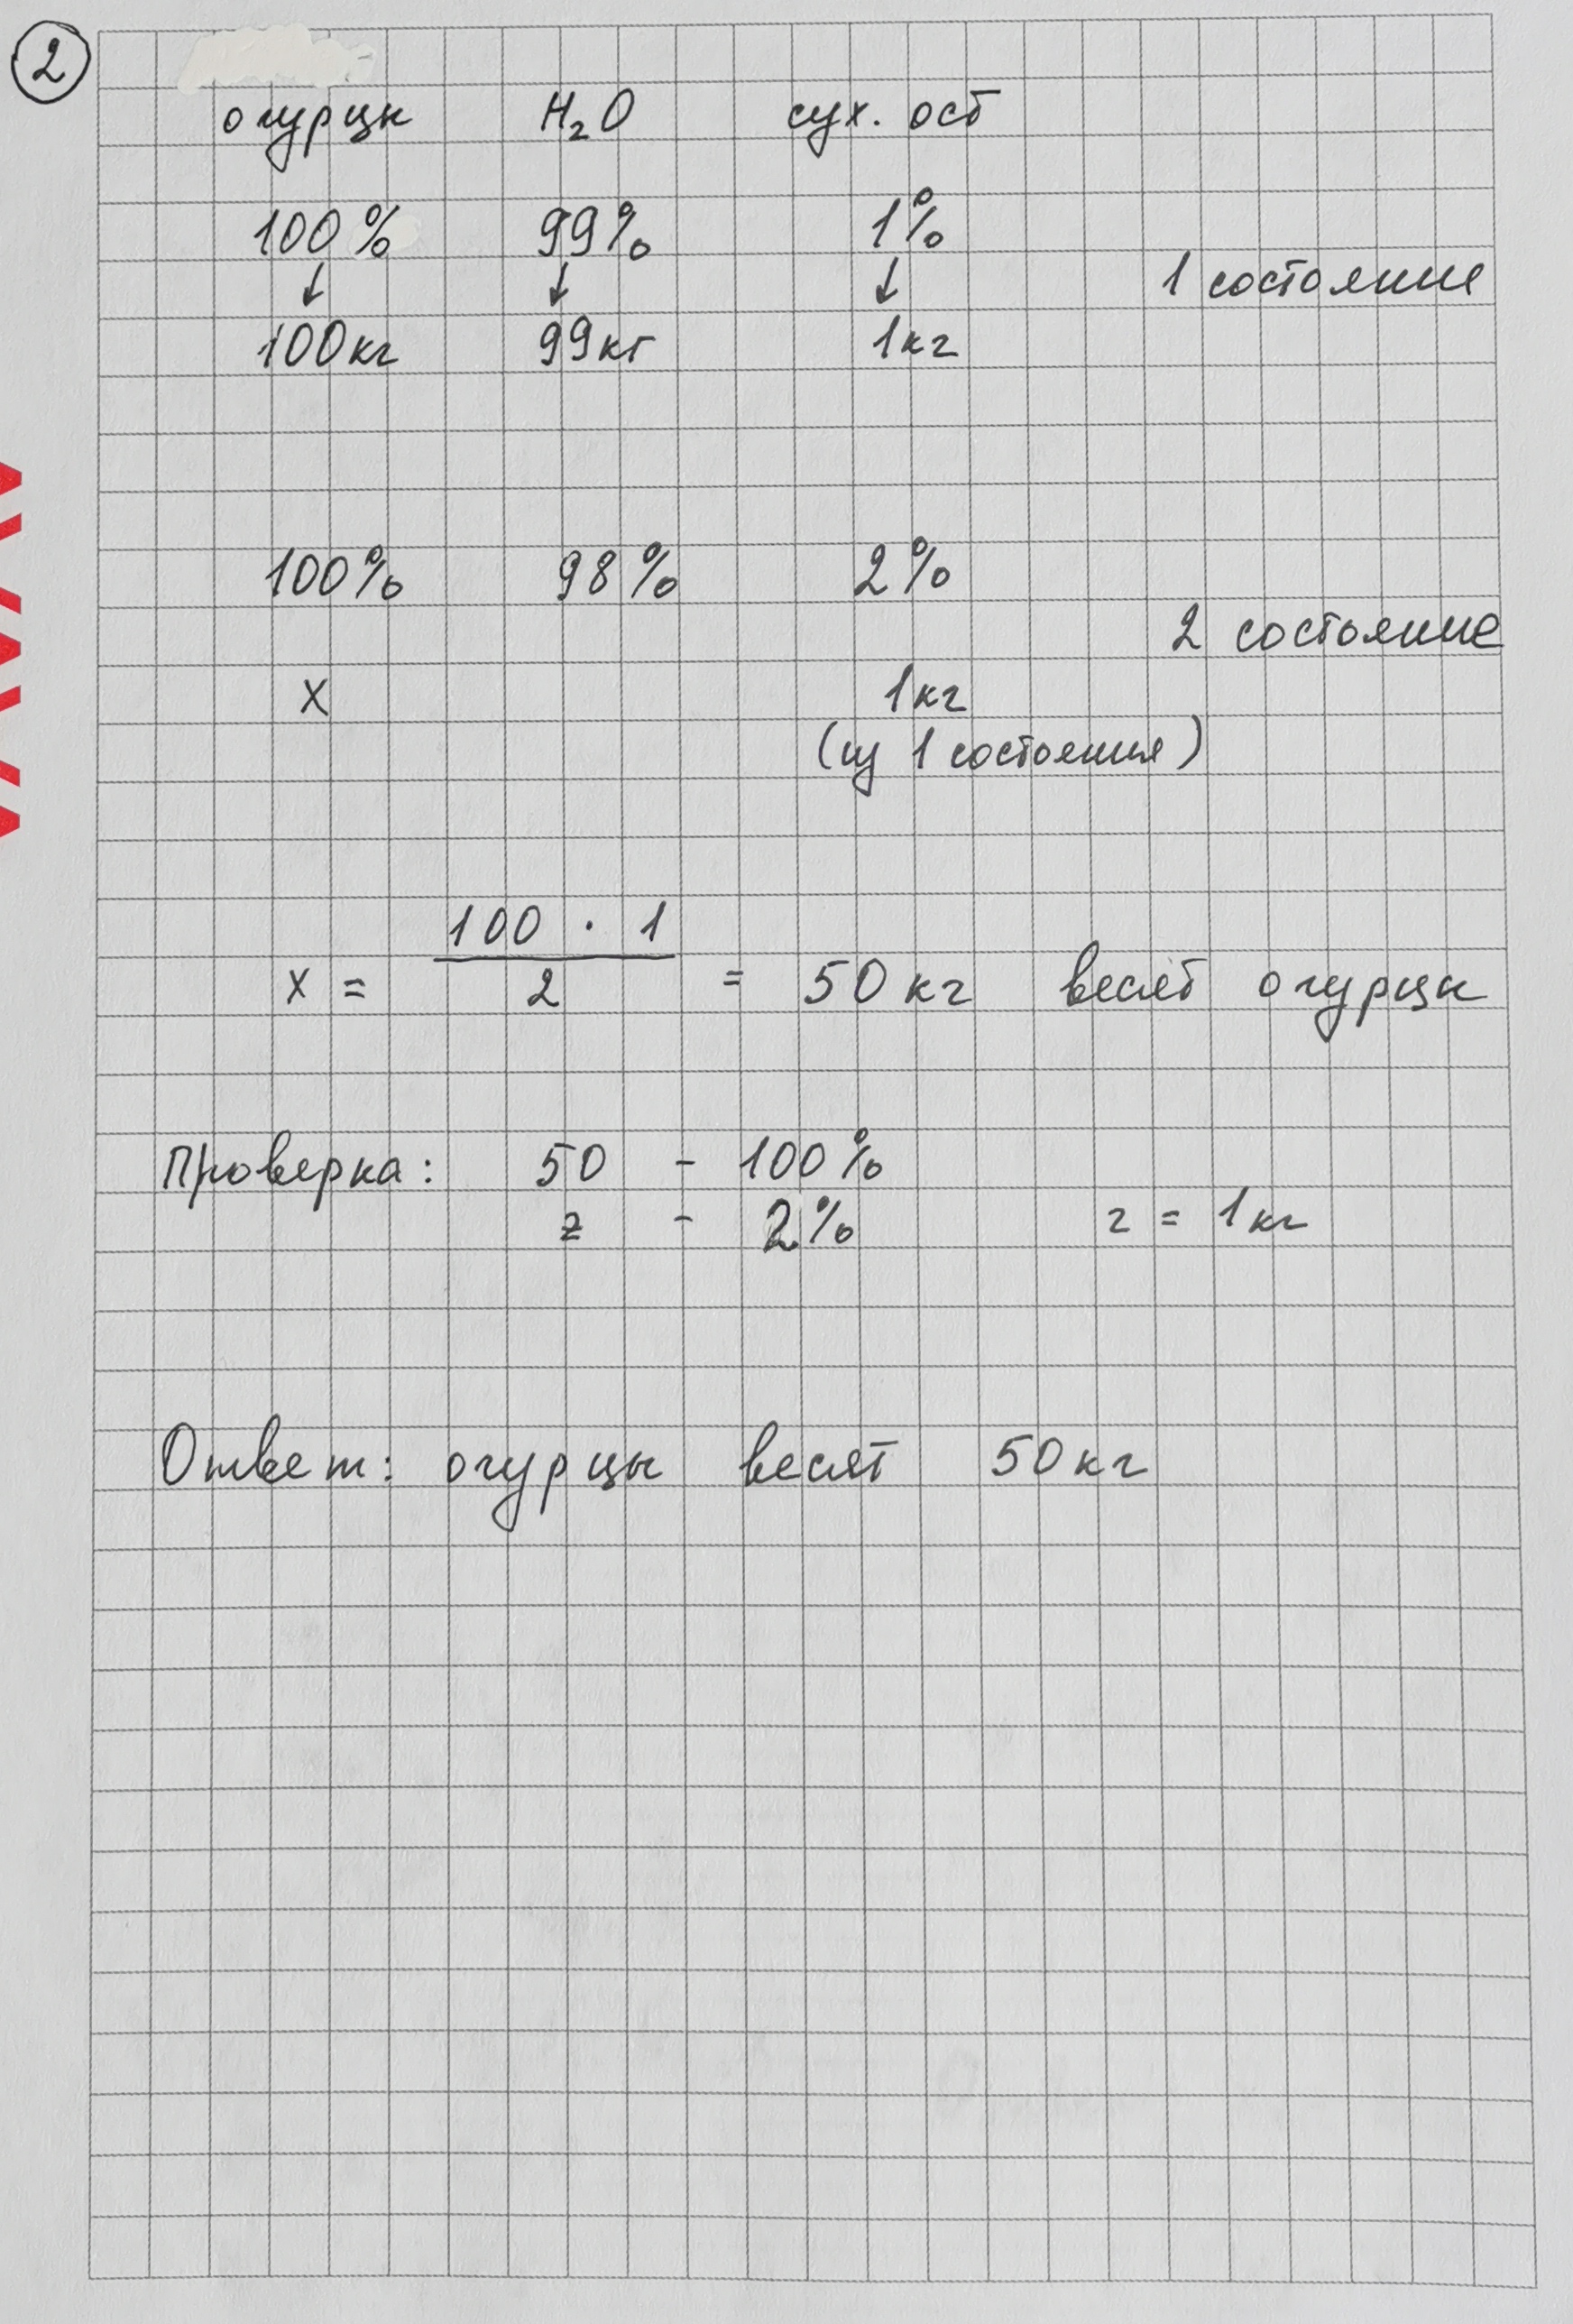 2
огурцы H₂O сух. ост
100% 99% 1%
↓ ↓ ↓
1 состояние
100кг 99кг 1кг
100% 98% 2%
2 состояние
X 1кг
(из 1 состояния)
x = 100 · 1 / 2 = 50 кг весят огурцы
Проверка: 50 - 100%
z - 2% z = 1кг
Ответ: огурцы весят 50кг